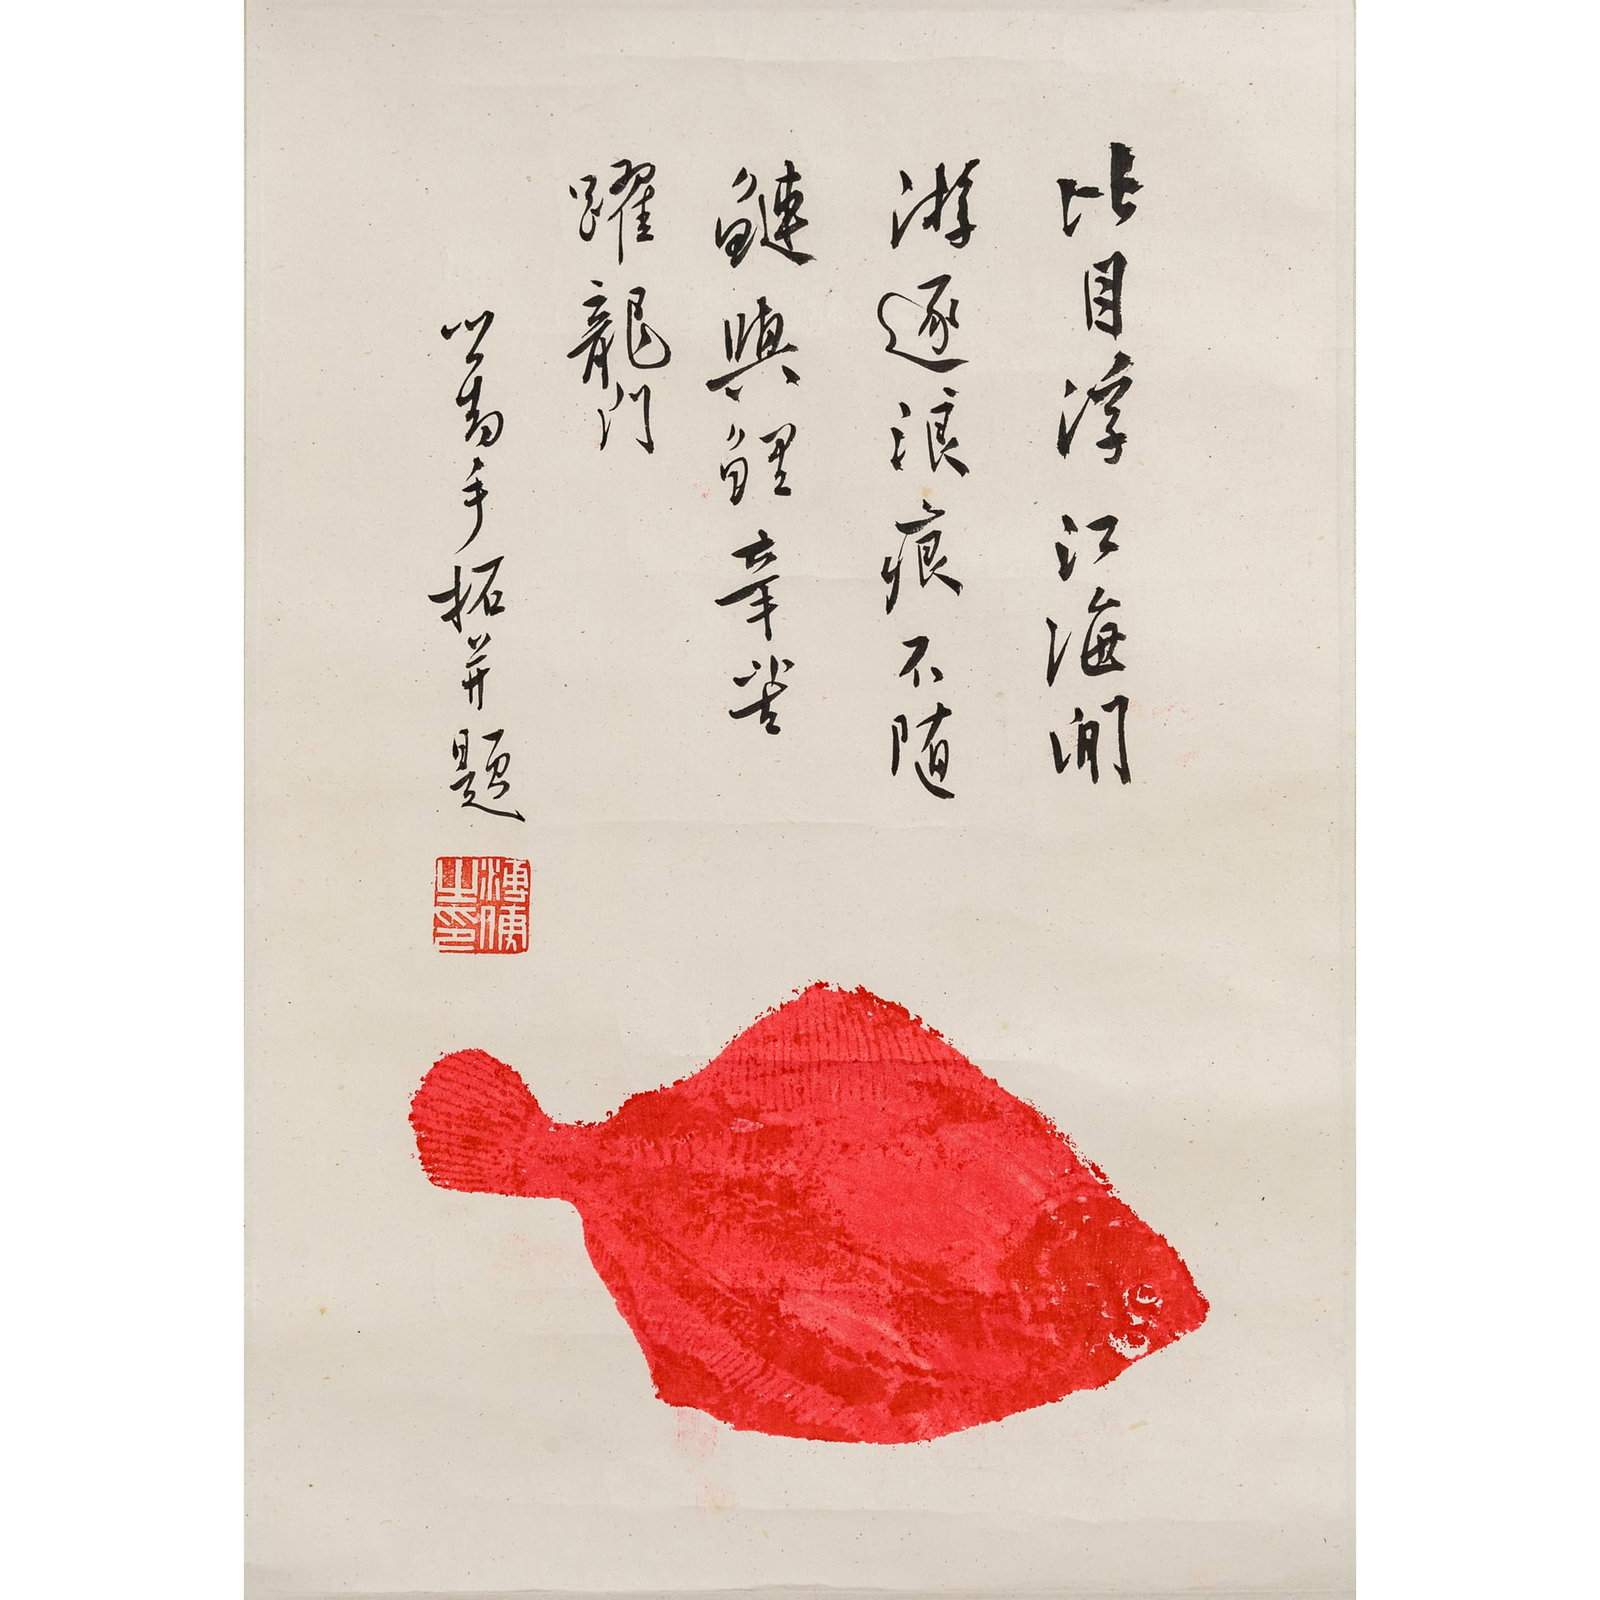 比目浮江海閒
游逐浪痕不随
鰱與鯉辛苦
躍龍門
心畬手拓并題
溥儒之印